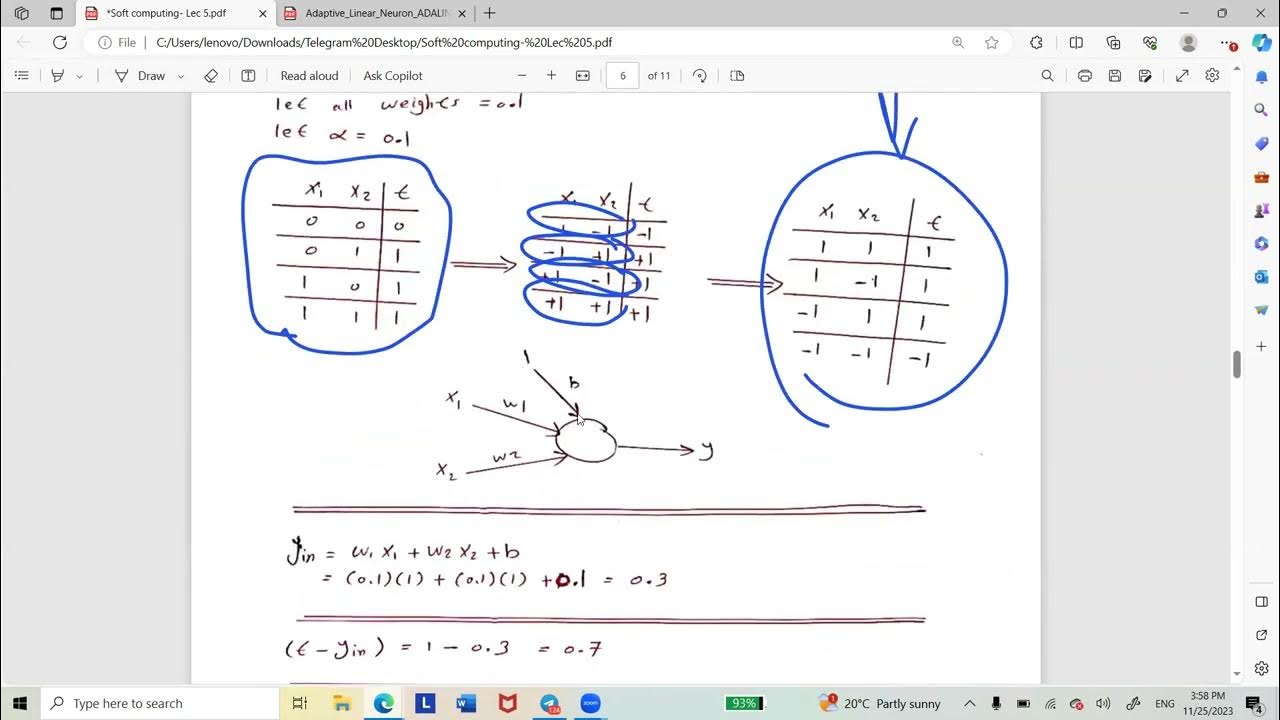 *Soft computing- Lec 5.pdf
Adaptive_Linear_Neuron_ADALIN
File C:/Users/lenovo/Downloads/Telegram%20Desktop/Soft%20computing-%20Lec%205.pdf
Draw Read aloud Ask Copilot 6 of 11
let all weights = 0.1
let α = 0.1
x1 x2 t
0 0 0
0 1 1
1 0 1
1 1 1
x1 x2 t
-1 -1
-1 +1 +1
+1 -1 +1
+1 +1 +1
x1 x2 t
1 1 1
1 -1 1
-1 1 1
-1 -1 -1
1
b
x1 w1
x2 w2
y
yin = w1 x1 + w2 x2 + b
= (0.1)(1) + (0.1)(1) + 0.1 = 0.3
(t - yin) = 1 - 0.3 = 0.7
Type here to search
L
W
124
zoom
93%
20°C Partly sunny
ENG
3:58 PM
11/25/2023
4